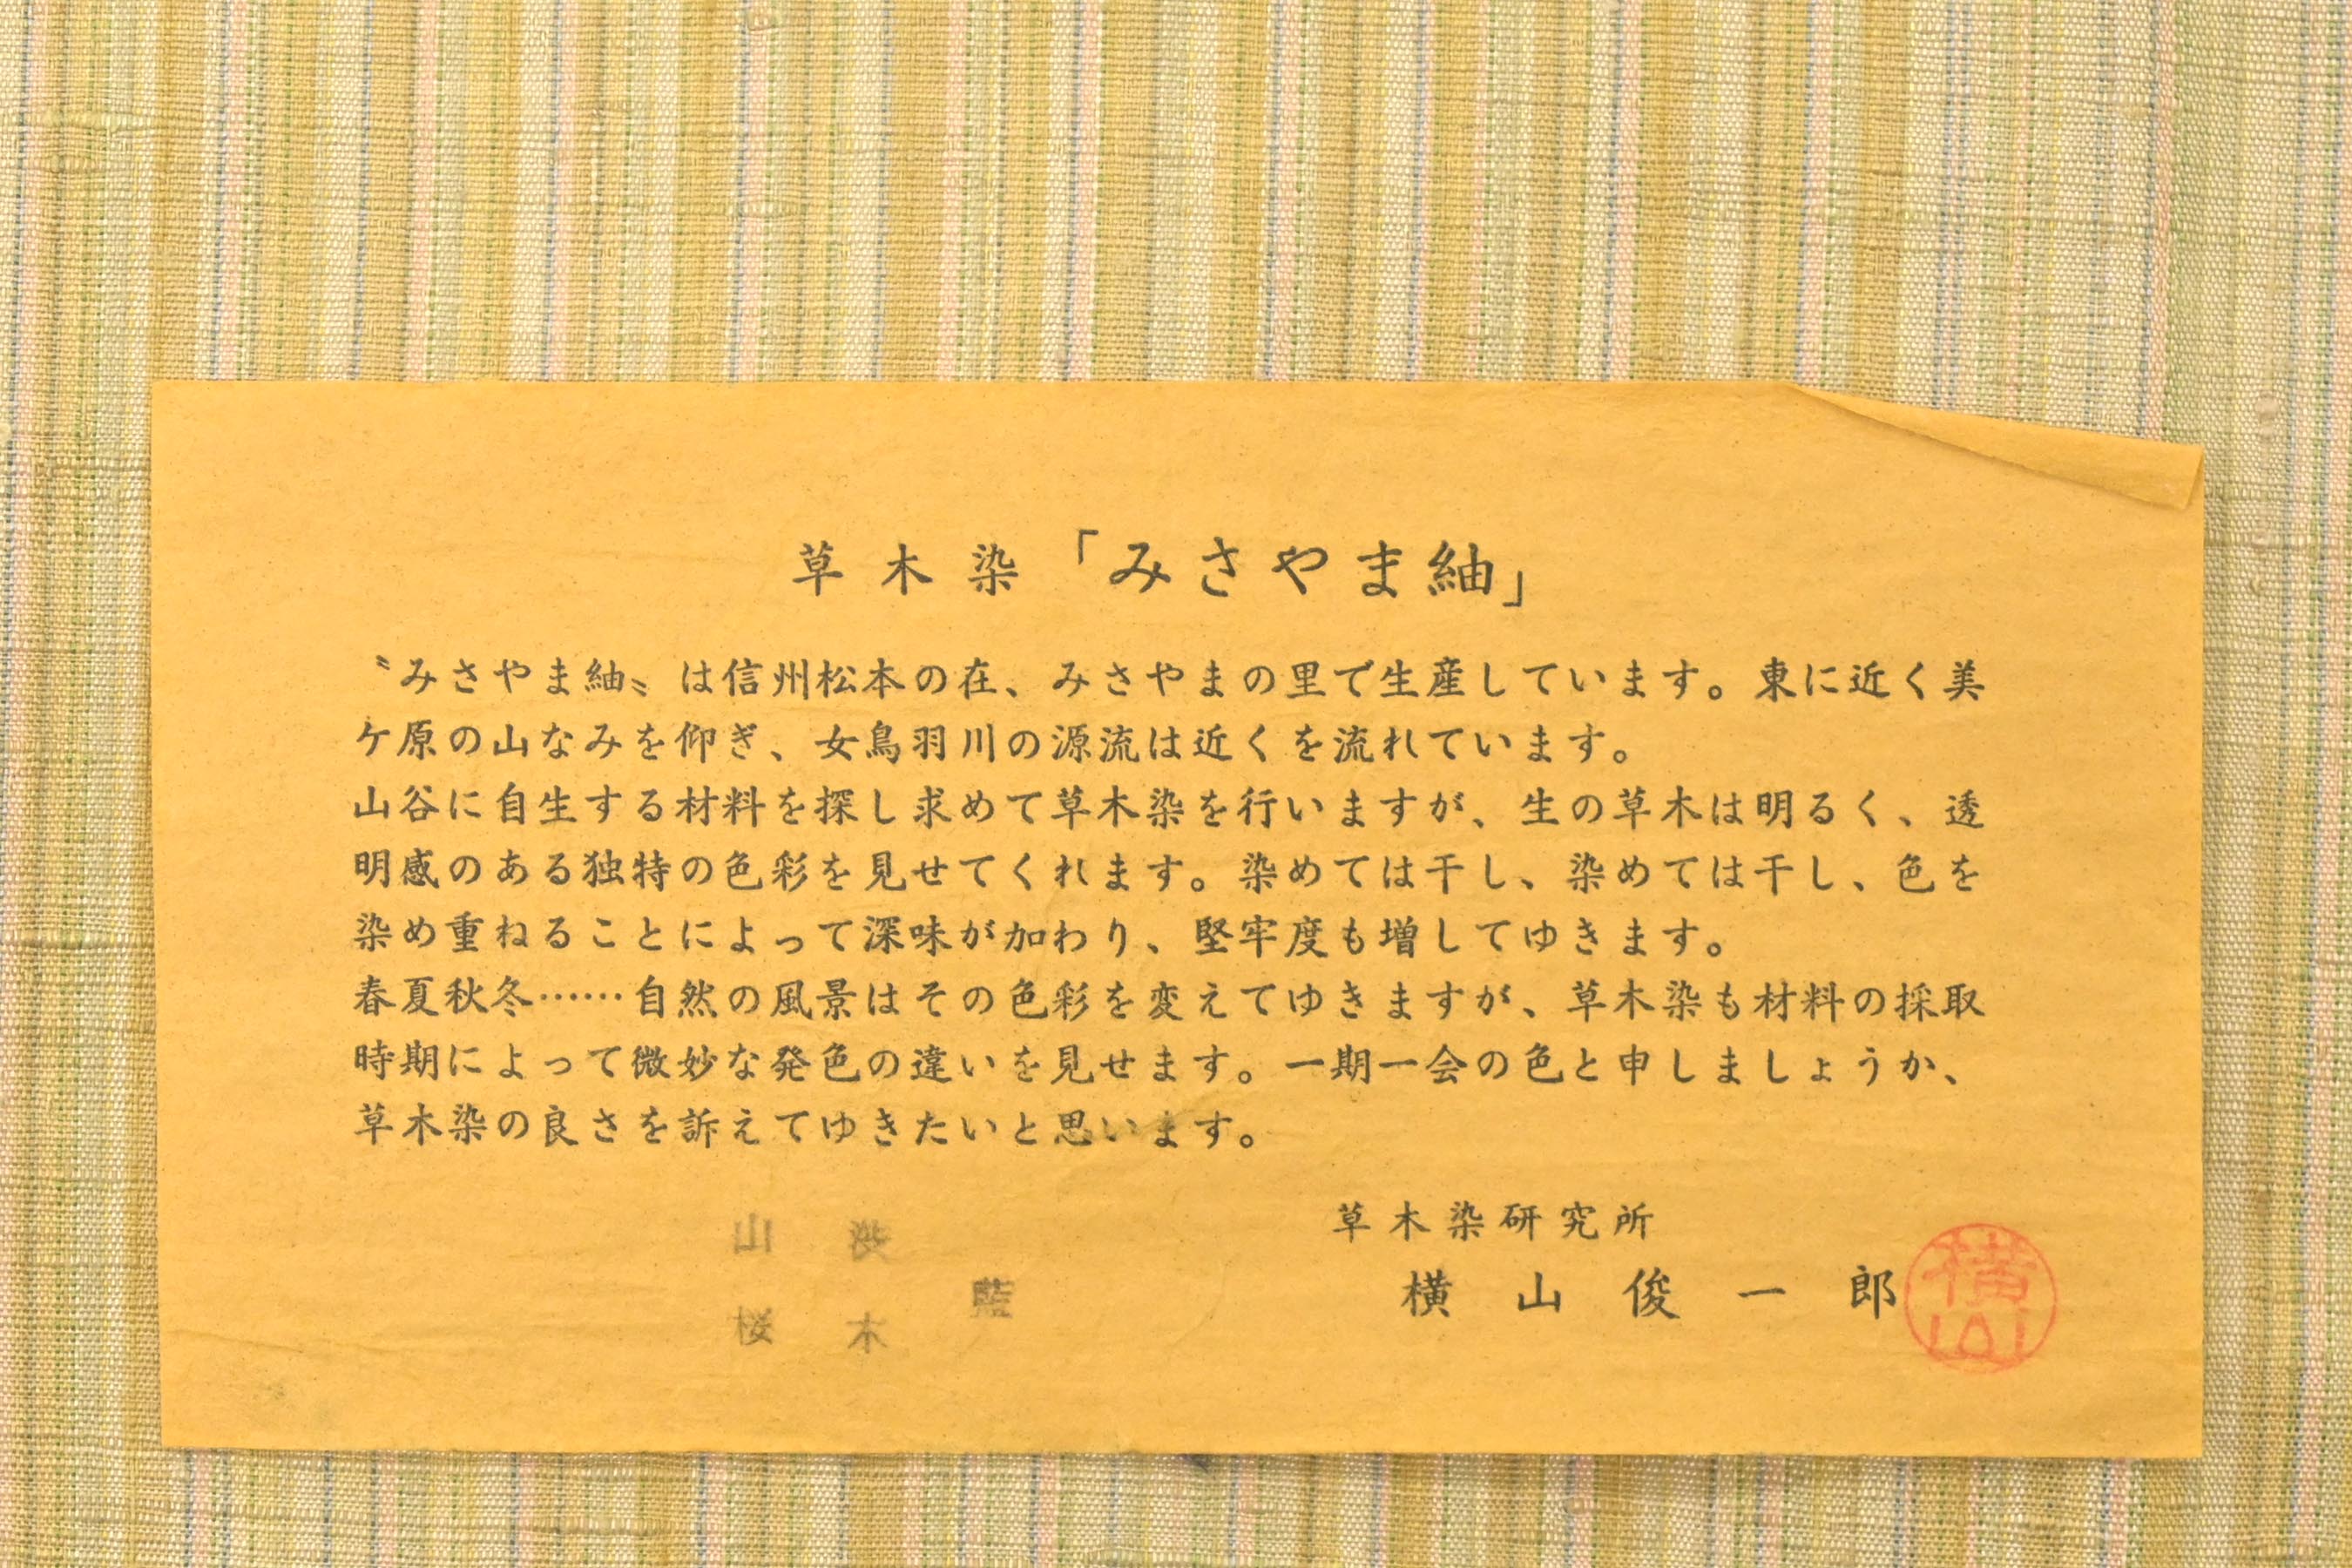 草木染「みさやま紬」
〝みさやま紬〟は信州松本の在、みさやまの里で生産しています。東に近く美
ケ原の山なみを仰ぎ、女鳥羽川の源流は近くを流れています。
山谷に自生する材料を探し求めて草木染を行いますが、生の草木は明るく、透
明感のある独特の色彩を見せてくれます。染めては干し、染めては干し、色を
染め重ねることによって深味が加わり、堅牢度も増してゆきます。
春夏秋冬……自然の風景はその色彩を変えてゆきますが、草木染も材料の採取
時期によって微妙な発色の違いを見せます。一期一会の色と申しましょうか、
草木染の良さを訴えてゆきたいと思います。
草木染研究所
横山俊一郎
横山
藍
渋木
山桜